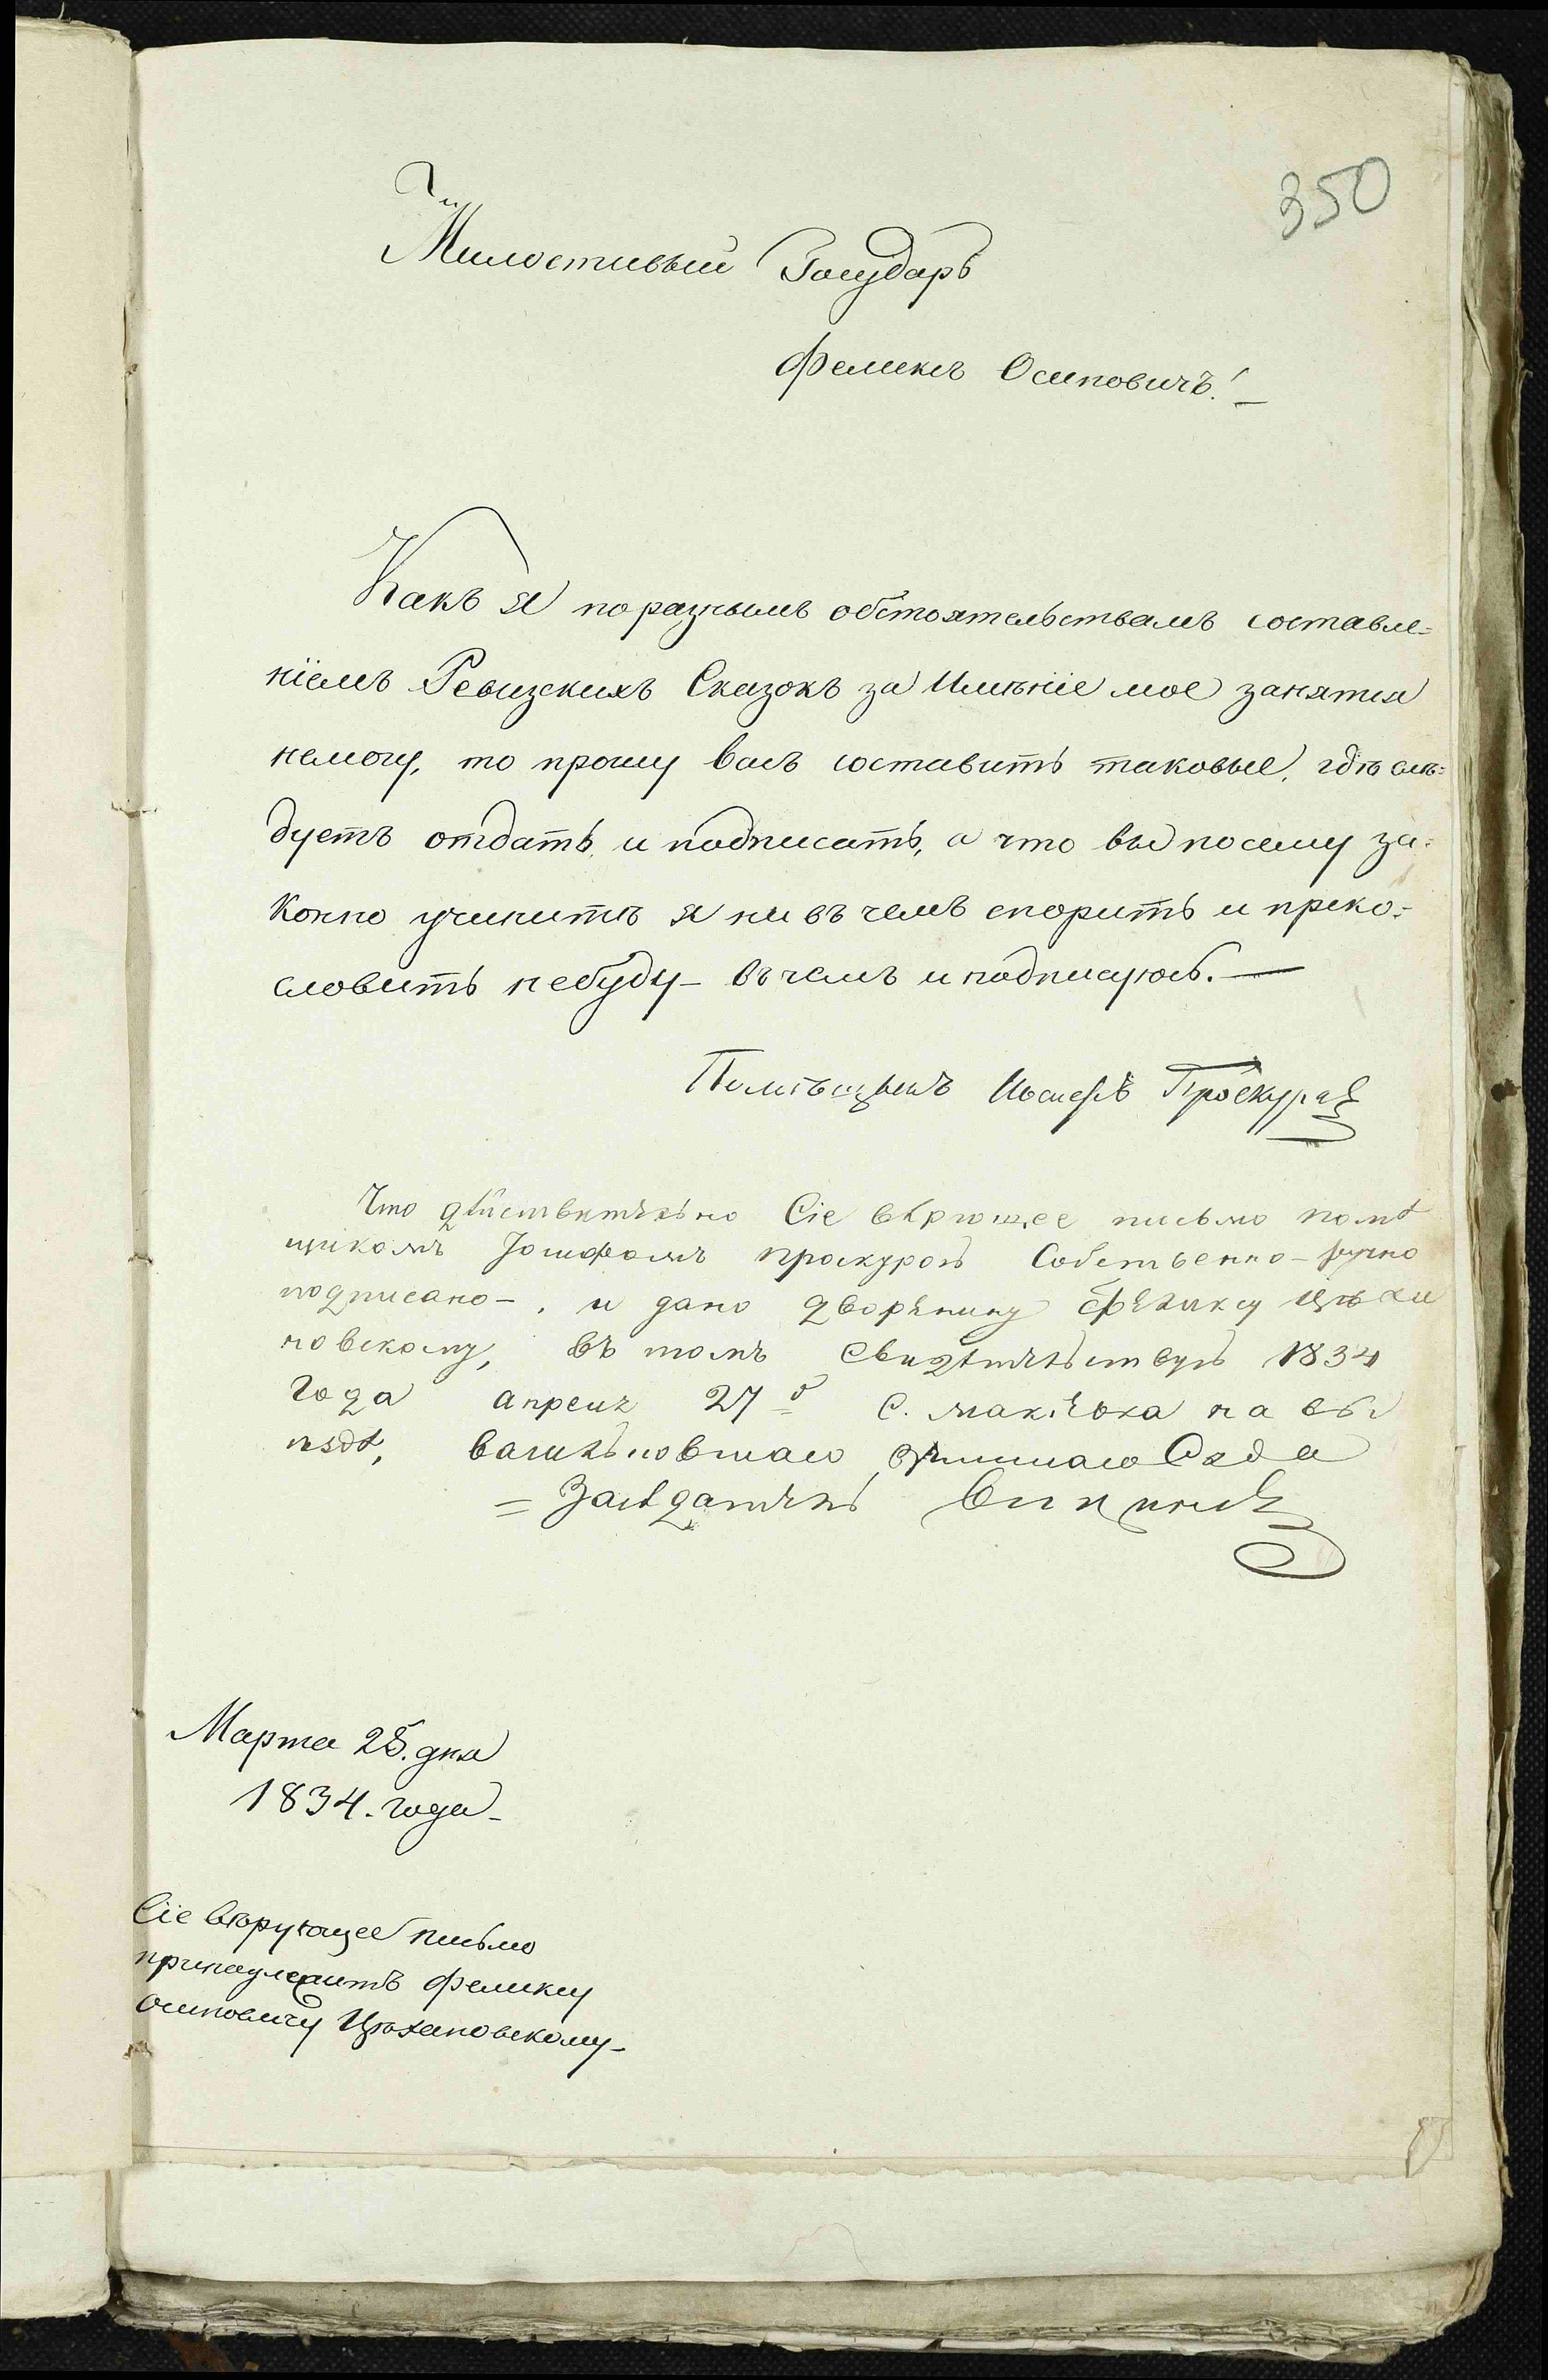 350
Милостивый Государь
Феликсъ Осиповичъ!
Какъ я по разнымъ обстоятельствамъ составле=
ніемъ Ревизскихъ Сказокъ за Имѣніе мое занятся
немогу, то прошу васъ составить таковые, гдѣ слѣ=
дуетъ отдать и подписать, а что вы посему за=
конно учините я ни въ чемъ спорить и преко=
словить небуду – въ чемъ и подписуюсь. —
Помѣщикъ Иосифъ Проскура
Что дѣйствительно Сіе вѣрющее письмо помѣ
щикомъ Іосифомъ Проскурою Собственно-ручно
подписано –, и дано дворянину Феликсу Цѣха
новскому, въ томъ Свидѣтельствую 1834
Года апреля 27 С.
васильковшаго Земшаго Суда
= Засѣдатель
Марта 25. дня
1834. года –
Сіе вѣрующее письмо
принадлежитъ Феликсу
Осиповичу Цѣхановскому –